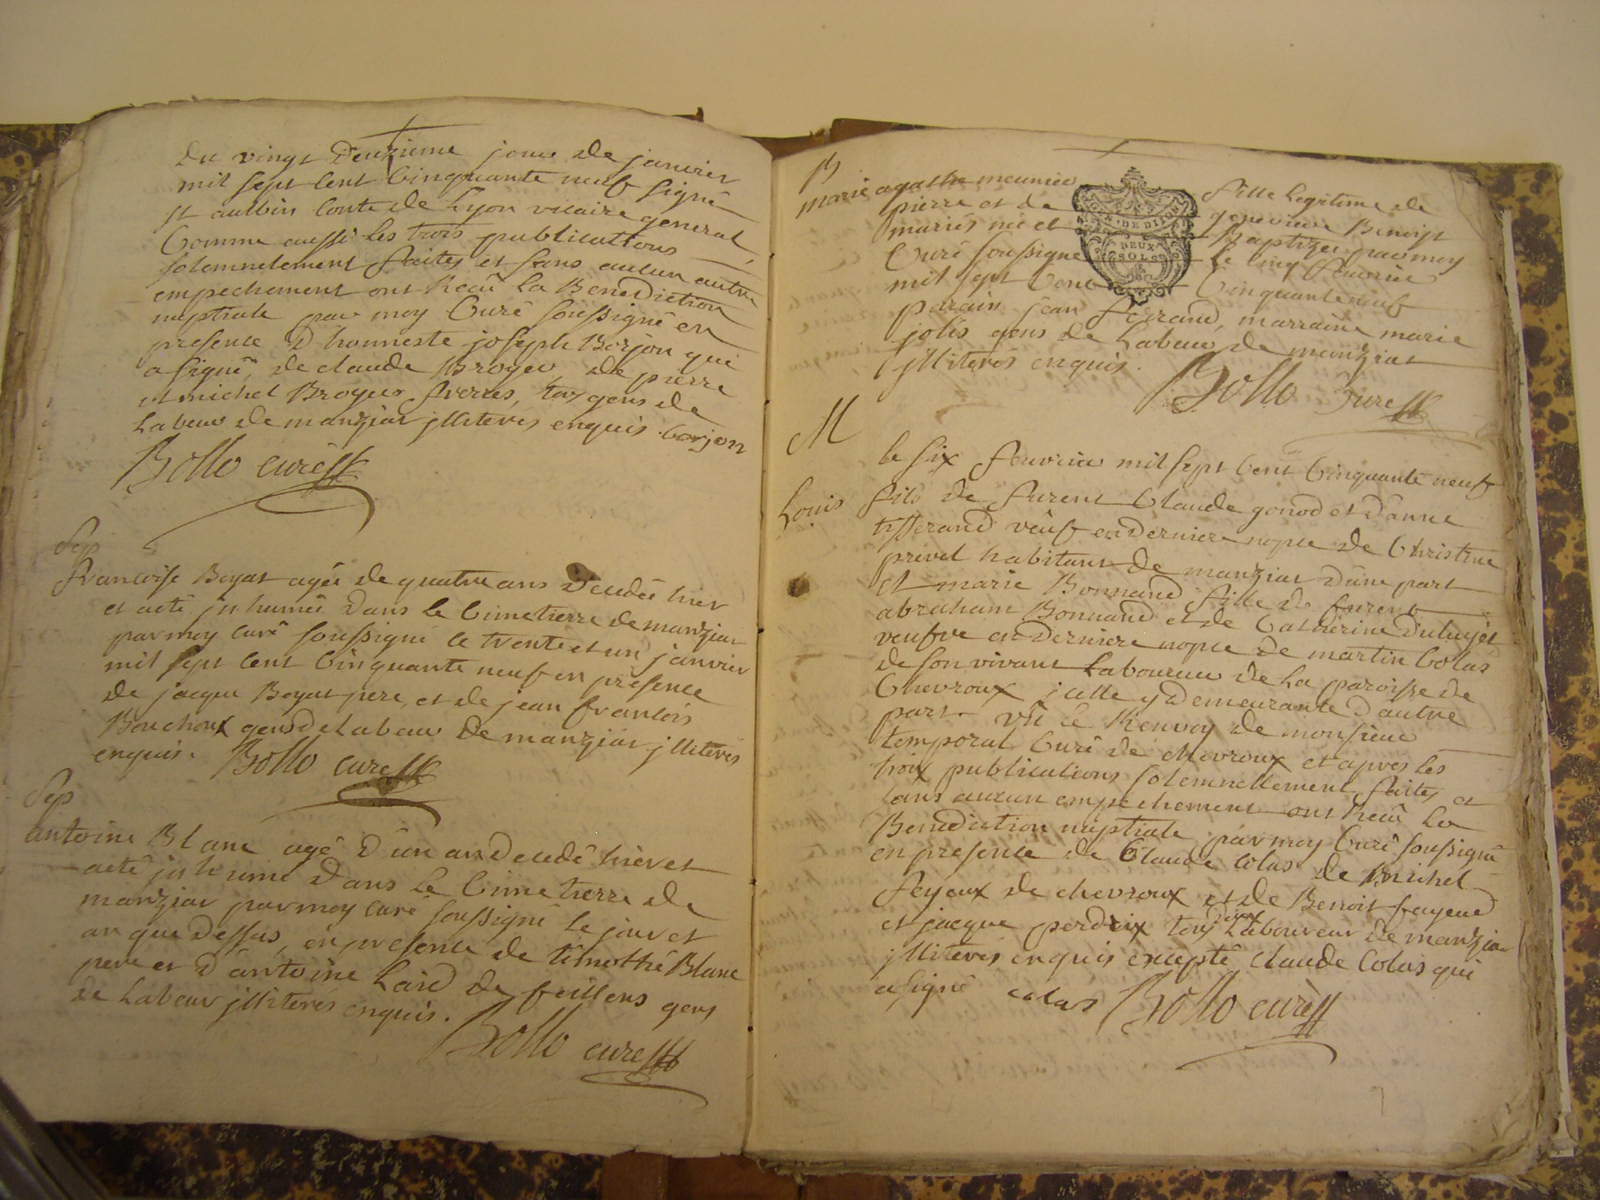 du vingt deuxieme jour de janvier
mil sept cent cinquante neuf signé
st aulbin conte de Lyon vicaire general
comme aussi les trois publications
solemnelement faites et sans aucun autre
empechement ont receu la Benediction
nuptiale par moy curé soussigné en
presence d honneste joseph Borjon qui
a signé, de claude Broyer, de pierre
et michel Broyer freres, tous gens de
labeur de manziat illiterés enquis. borjon
Bollo curé
Sep
francoise Boyat agée de quatre ans decedée hier
et a eté inhumée dans le cimetierre de manziat
par moy curé soussigné le trente et un janvier
mil sept cent cinquante neuf en presence
de jacque Boyat pere, et de jean francois
Bouchoux gens de labeur de manziat illiterés
enquis. Bollo curé
Sep
antoine Blanc agé d'un an decedé hier et
a eté inhumé dans le cimetierre de
manziat par moy curé soussigné le jour et
an que dessus, en presence de timothé Blanc
pere et d'antoine Laid de feillens gens
de labeur illiterés enquis.
Bollo curé
B
marie agathe meunier fille legitime de
pierre et de genevieve Benoist
mariés née et Baptizée par moy
curé soussigné le cinq fevrier
mil sept cent cinquante neuf
parain jean feraud, marraine marie
jolis gens de labeur de manziat
illiteres enquis.
Bollo curé
DE DIJON
DEUX
SOLS
M
le six fevrier mil sept cent cinquante neuf
Louis fils de furent claude gonod et d'anne
tisserand veuf en derniere nopce de christine
privel habitant de manziat d'une part
et marie Bonnand fille de furent
abraham Bonnand et de catherine dutuyét
veufve en derniere nopce de martin colas
de son vivant laboureur de la paroisse de
chevroux icelle y demeurante d'autre
part. vû le Renvoy de monsieur
temporal curé de chevroux et apres les
trois publications solemnellement faites et
sans aucun empechement ont receu la
Benediction nuptiale par moy curé soussigné
en presence de claude colas de michel
feyeux de chevroux et de Benoit feyeux
et jacque perdrix tous laboureur de manziat
illiterés enquis excepté claude colas qui
a signé colas Bollo curé